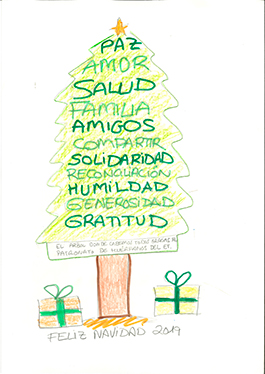 PAZ
AMOR
SALUD
FAMILIA
AMIGOS
COMPARTIR
SOLIDARIDAD
RECONCILIACIÓN
HUMILDAD
GENEROSIDAD
GRATITUD
EL ÁRBOL DONDE CABEMOS TODOS GRACIAS AL
PATRONATO DE HUÉRFANOS DEL ET.
FELIZ NAVIDAD 2019